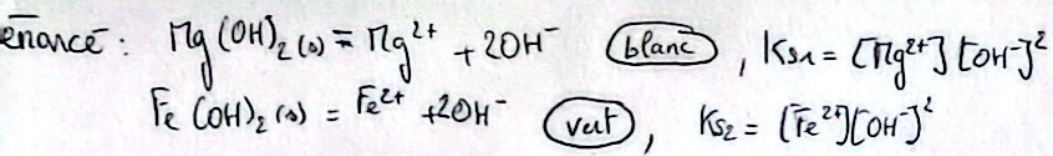 énoncé : Mg(OH)₂(s) = Mg²⁺ + 2OH⁻ blanc, Ks₁ = [Mg²⁺][OH⁻]²
Fe(OH)₂(s) = Fe²⁺ + 2OH⁻ vert, Ks₂ = [Fe²⁺][OH⁻]²